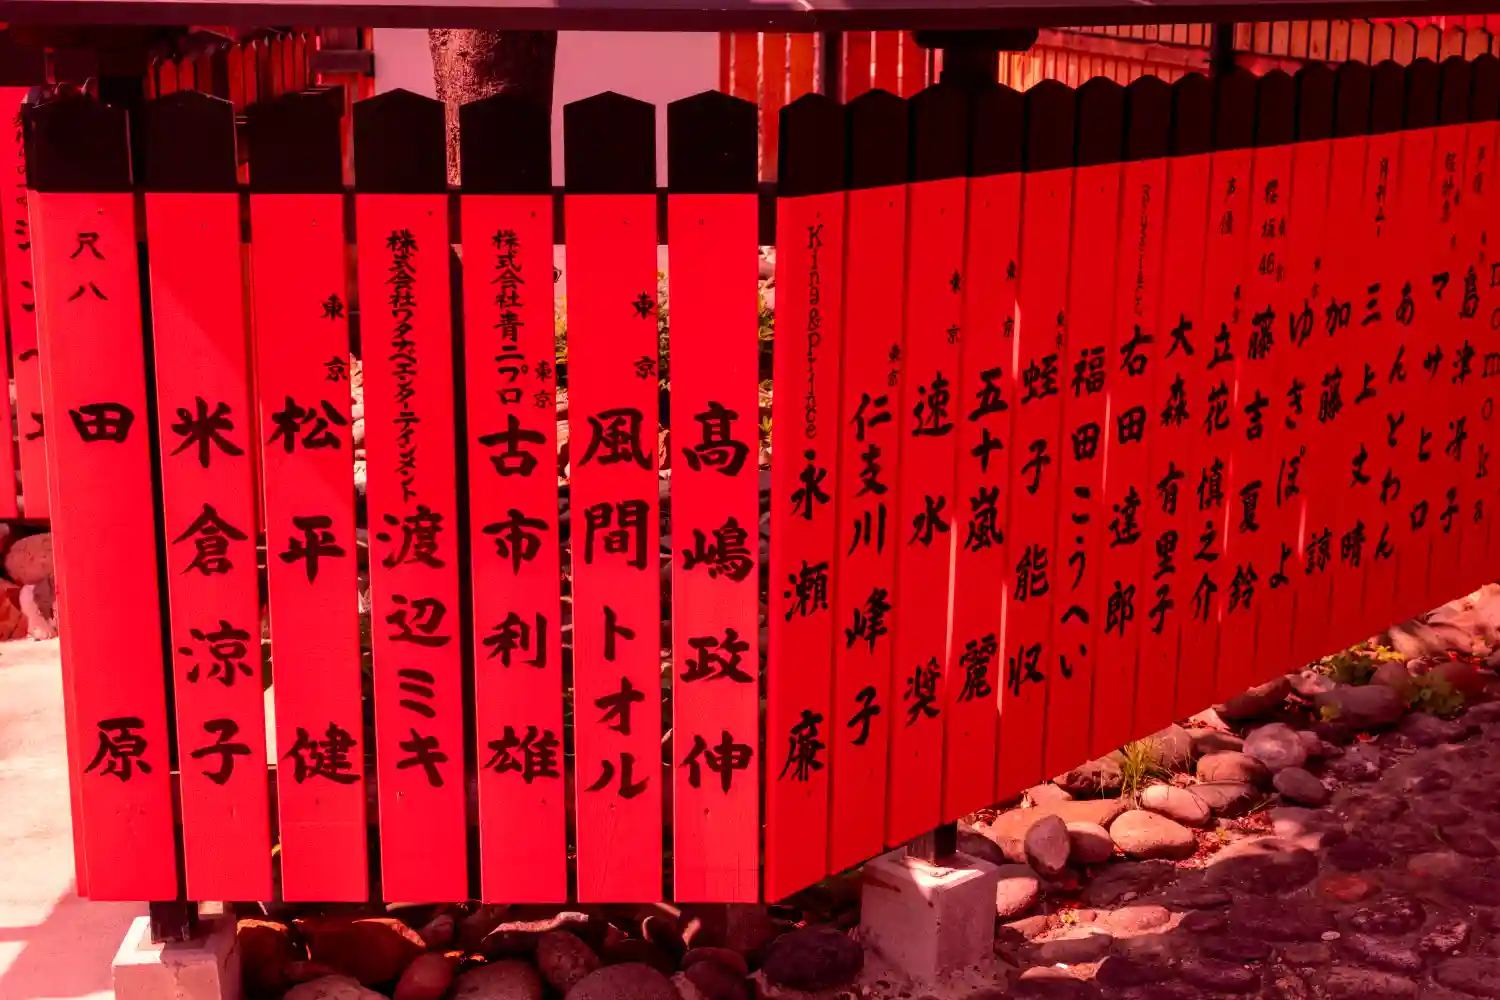 尺八 田原
米倉涼子
東京 松平健
株式会社ワタナベエンターテインメント 渡辺ミキ
株式会社青二プロ 東京 古市利雄
東京 風間トオル
髙嶋政伸
King&Prince 永瀬廉
東京 仁支川峰子
東京 速水奨
東京 五十嵐麗
東京 蛭子能収
福田こうへい
右田達郎
大森有里子
声優 立花慎之介
櫻坂46 藤吉夏鈴
東京 ゆきぽよ
加藤諒
三上丈晴
あんとわん
マサヒロ
島津冴子
momoka